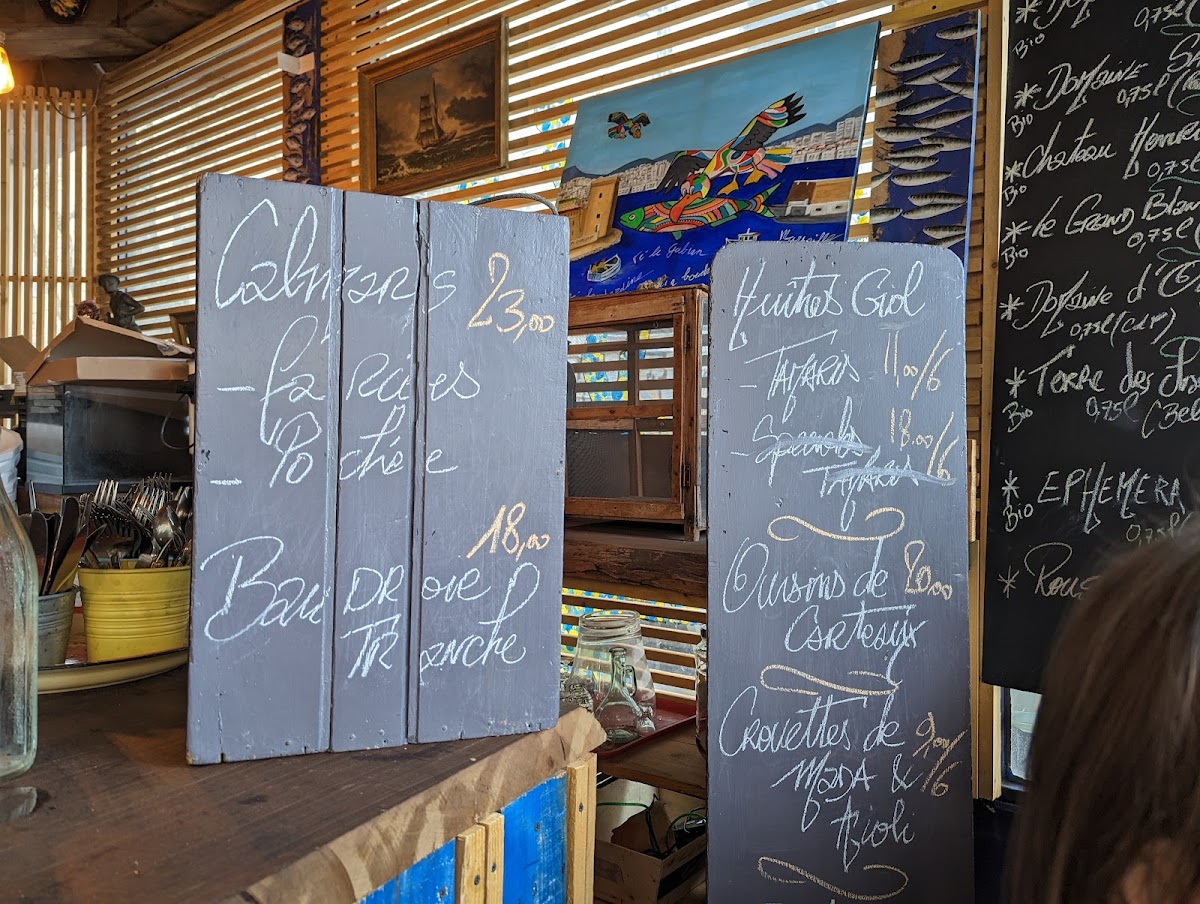 Calmars
23,00
- farcies
- Pochée
18,00
Baudroie
Tranche
Huîtres Giol
- Tamaris 11.00/6
- Speciale 18.00/6
Tamaris
Oursins de 20.00
Carteaux
Crevettes de 9,00/6
Mada &
Aïoli
0,75l
Bio
* Domaine
0,75l
Bio
* Chateau
0,75l
Bio
* Le Grand Blanc
0,75l
Bio
* Domaine d'
0,75l
* Terre des
Bio 0,75l
* EPHEMERA
Bio 0,75l
* Rous
Marseille